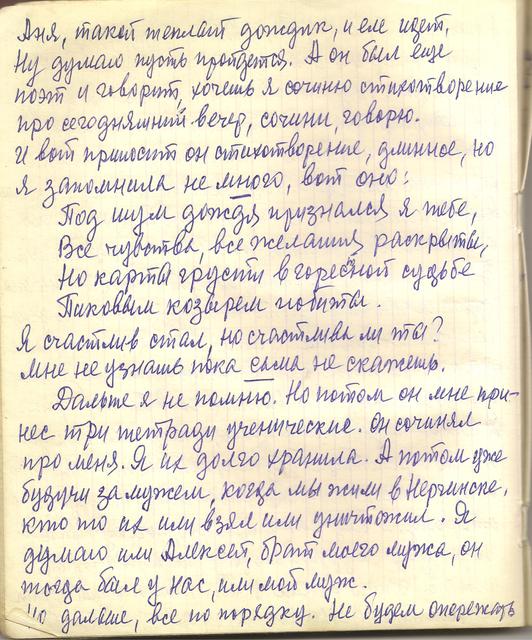 Аня, такой теплый дождик, и еле идет,
Ну думаю пусть пройдется. А он был еще
поэт и говорит, хочешь я сочиню стихотворение
про сегодняшний вечер, сочини, говорю.
И вот приносит он стихотворение, длинное, но
я запомнила не много, вот оно:
Под шум дождя признался я тебе,
Все чувства, все желания раскрыты,
Но карты грусти в горестной судьбе
Пиковым козырем побиты.
Я счастлив стал, но счастлива ли ты?
Мне не узнать пока сама не скажешь.
Дальше я не помню. Но потом он мне при-
нес три тетради ученические. Он сочинял
про меня. Я их долго хранила. А потом уже
будучи замужем, когда мы жили в Нерчинске,
кто то их или взял или уничтожил. Я
думаю или Алексей, брат моего мужа, он
тогда был у нас, или мой муж.
Но дальше, все по порядку. Не будем опережать